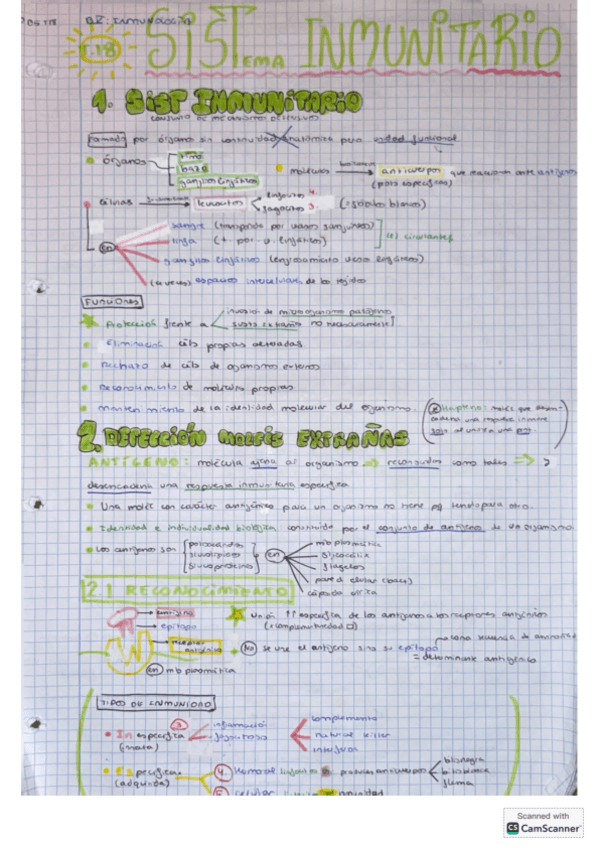 B2: INMUNOLOGÍA
T.18
SISTEMA INMUNITARIO
1. SIST INMUNITARIO
CONJUNTO DE MECANISMOS DEFENSIVOS
Formado por órganos sin continuidad anatómica pero unidad funcional
órganos
timo
bazo
ganglios linfáticos
moléculas
anticuerpos que reaccionan ante antígenos
(para específicos)
células
leucocitos
linfocitos 4.
fagocitos 3.
(= glóbulos blancos)
en
sangre (transportado por vasos sanguíneos)
linfa (t. por v. linfáticos)
circulantes
ganglios linfáticos (engrosamiento vasos linfáticos)
(a veces) espacios intercelulares de los tejidos
FUNCIONES
Protección frente a
invasión de microorganismos patógenos
susts extrañas no necesariamente
Eliminación céls propias alteradas
Rechazo de céls de organismos externos
Reconocimiento de moléculas propias
Mantenimiento de la identidad molecular del organismo.
Hapteno: moléc que desen-
cadena una respuesta inmune
solo al unirse a una
2. DETECCIÓN MOLÉCS EXTRAÑAS
ANTÍGENO: molécula ajena al organismo reconocidas como tales
desencadena una respuesta inmunitaria específica
Una moléc con carácter antigénico para un organismo no tiene pq tenerlo para otro.
Identidad e individualidad biológica constituida por el conjunto de antígenos de un organismo
Los antígenos son
polisacáridos
glucolípidos
glucoproteínas
en
mb plasmática
glucocálix
flagelos
pared celular (bacs)
cápsida vírica
2.1 RECONOCIMIENTO
antígeno
epítopo
receptor
antigénico
en mb plasmática
Unión ↑↑ específica de los antígenos a los receptores antigénicos
(+ complementariedad)
NO se une el antígeno sino su epítopo
= determinante antigénico
corta secuencia de aminoácidos
TIPOS DE INMUNIDAD
Inespecífica
(innata)
3.
inflamación
fagocitosis
complemento
natural killer
interferón
Específica
(adquirida)
4. Humoral linfocitos B producen anticuerpos
5. celular
inmunidad
Scanned with
CS CamScanner